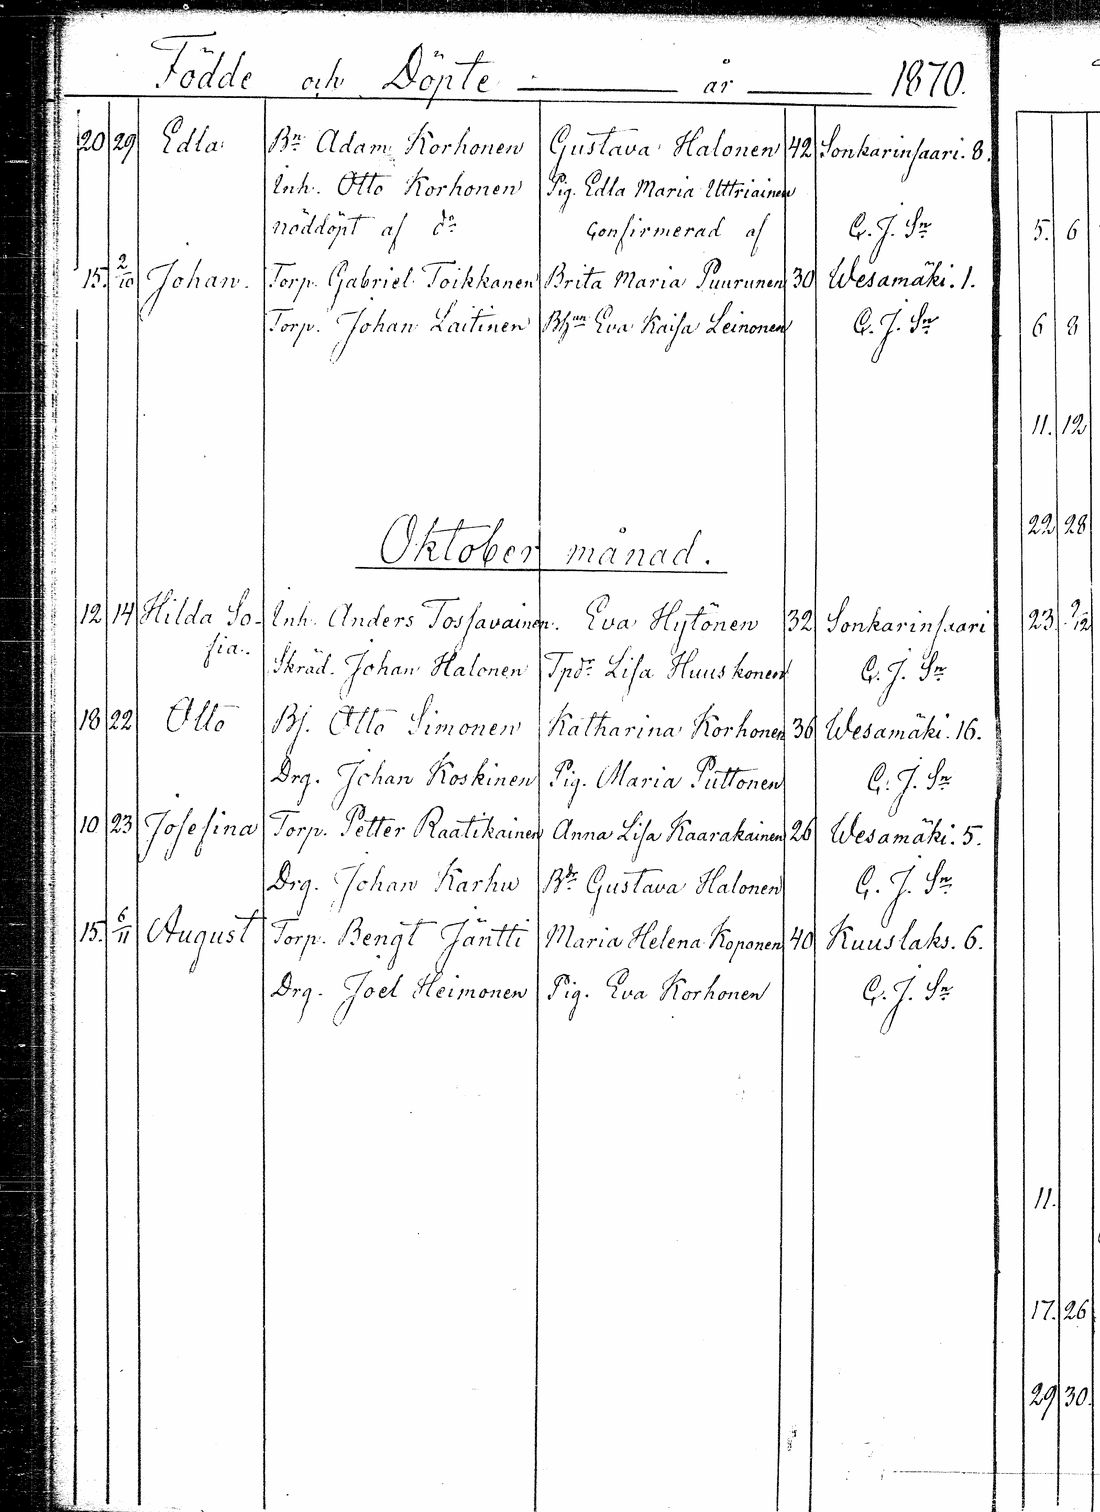 Födde och Döpte år 1870.
20 29 Edla Bn Adam Korhonen Gustava Halonen 42 Sonkarinsaari. 8.
Inh. Otto Korhonen Pig. Edla Maria Uttriainen
nöddöpt af dn Confirmerad af G. J. Sn
15. 2/10 Johan. Torp. Gabriel Toikkanen Brita Maria Puurunen 30 Wesamäki. 1.
Torp. Johan Laitinen Eva Kaisa Leinonen G. J. Sn
Oktober månad.
12 14 Hilda So- Inh. Anders Tossavainen. Eva Hytönen 32 Sonkarinsaari
fia. Skräd. Johan Halonen Tpdr Lisa Huuskonen G. J. Sn
18 22 Otto Bj. Otto Simonen Katharina Korhonen 36 Wesamäki. 16.
Drg. Johan Koskinen Pig. Maria Puttonen G. J. Sn
10 23 Josefina Torp. Petter Raatikainen Anna Lisa Kaarakainen 26 Wesamäki. 5.
Drg. Johan Karhu Bdr Gustava Halonen G. J. Sn
15. 6/11 August Torp. Bengt Jäntti Maria Helena Koponen 40 Kuuslaks. 6.
Drg. Joel Heimonen Pig. Eva Korhonen G. J. Sn
5. 6
6 8
11. 12
22 28
23. 2/12
11.
17. 26
29 30.